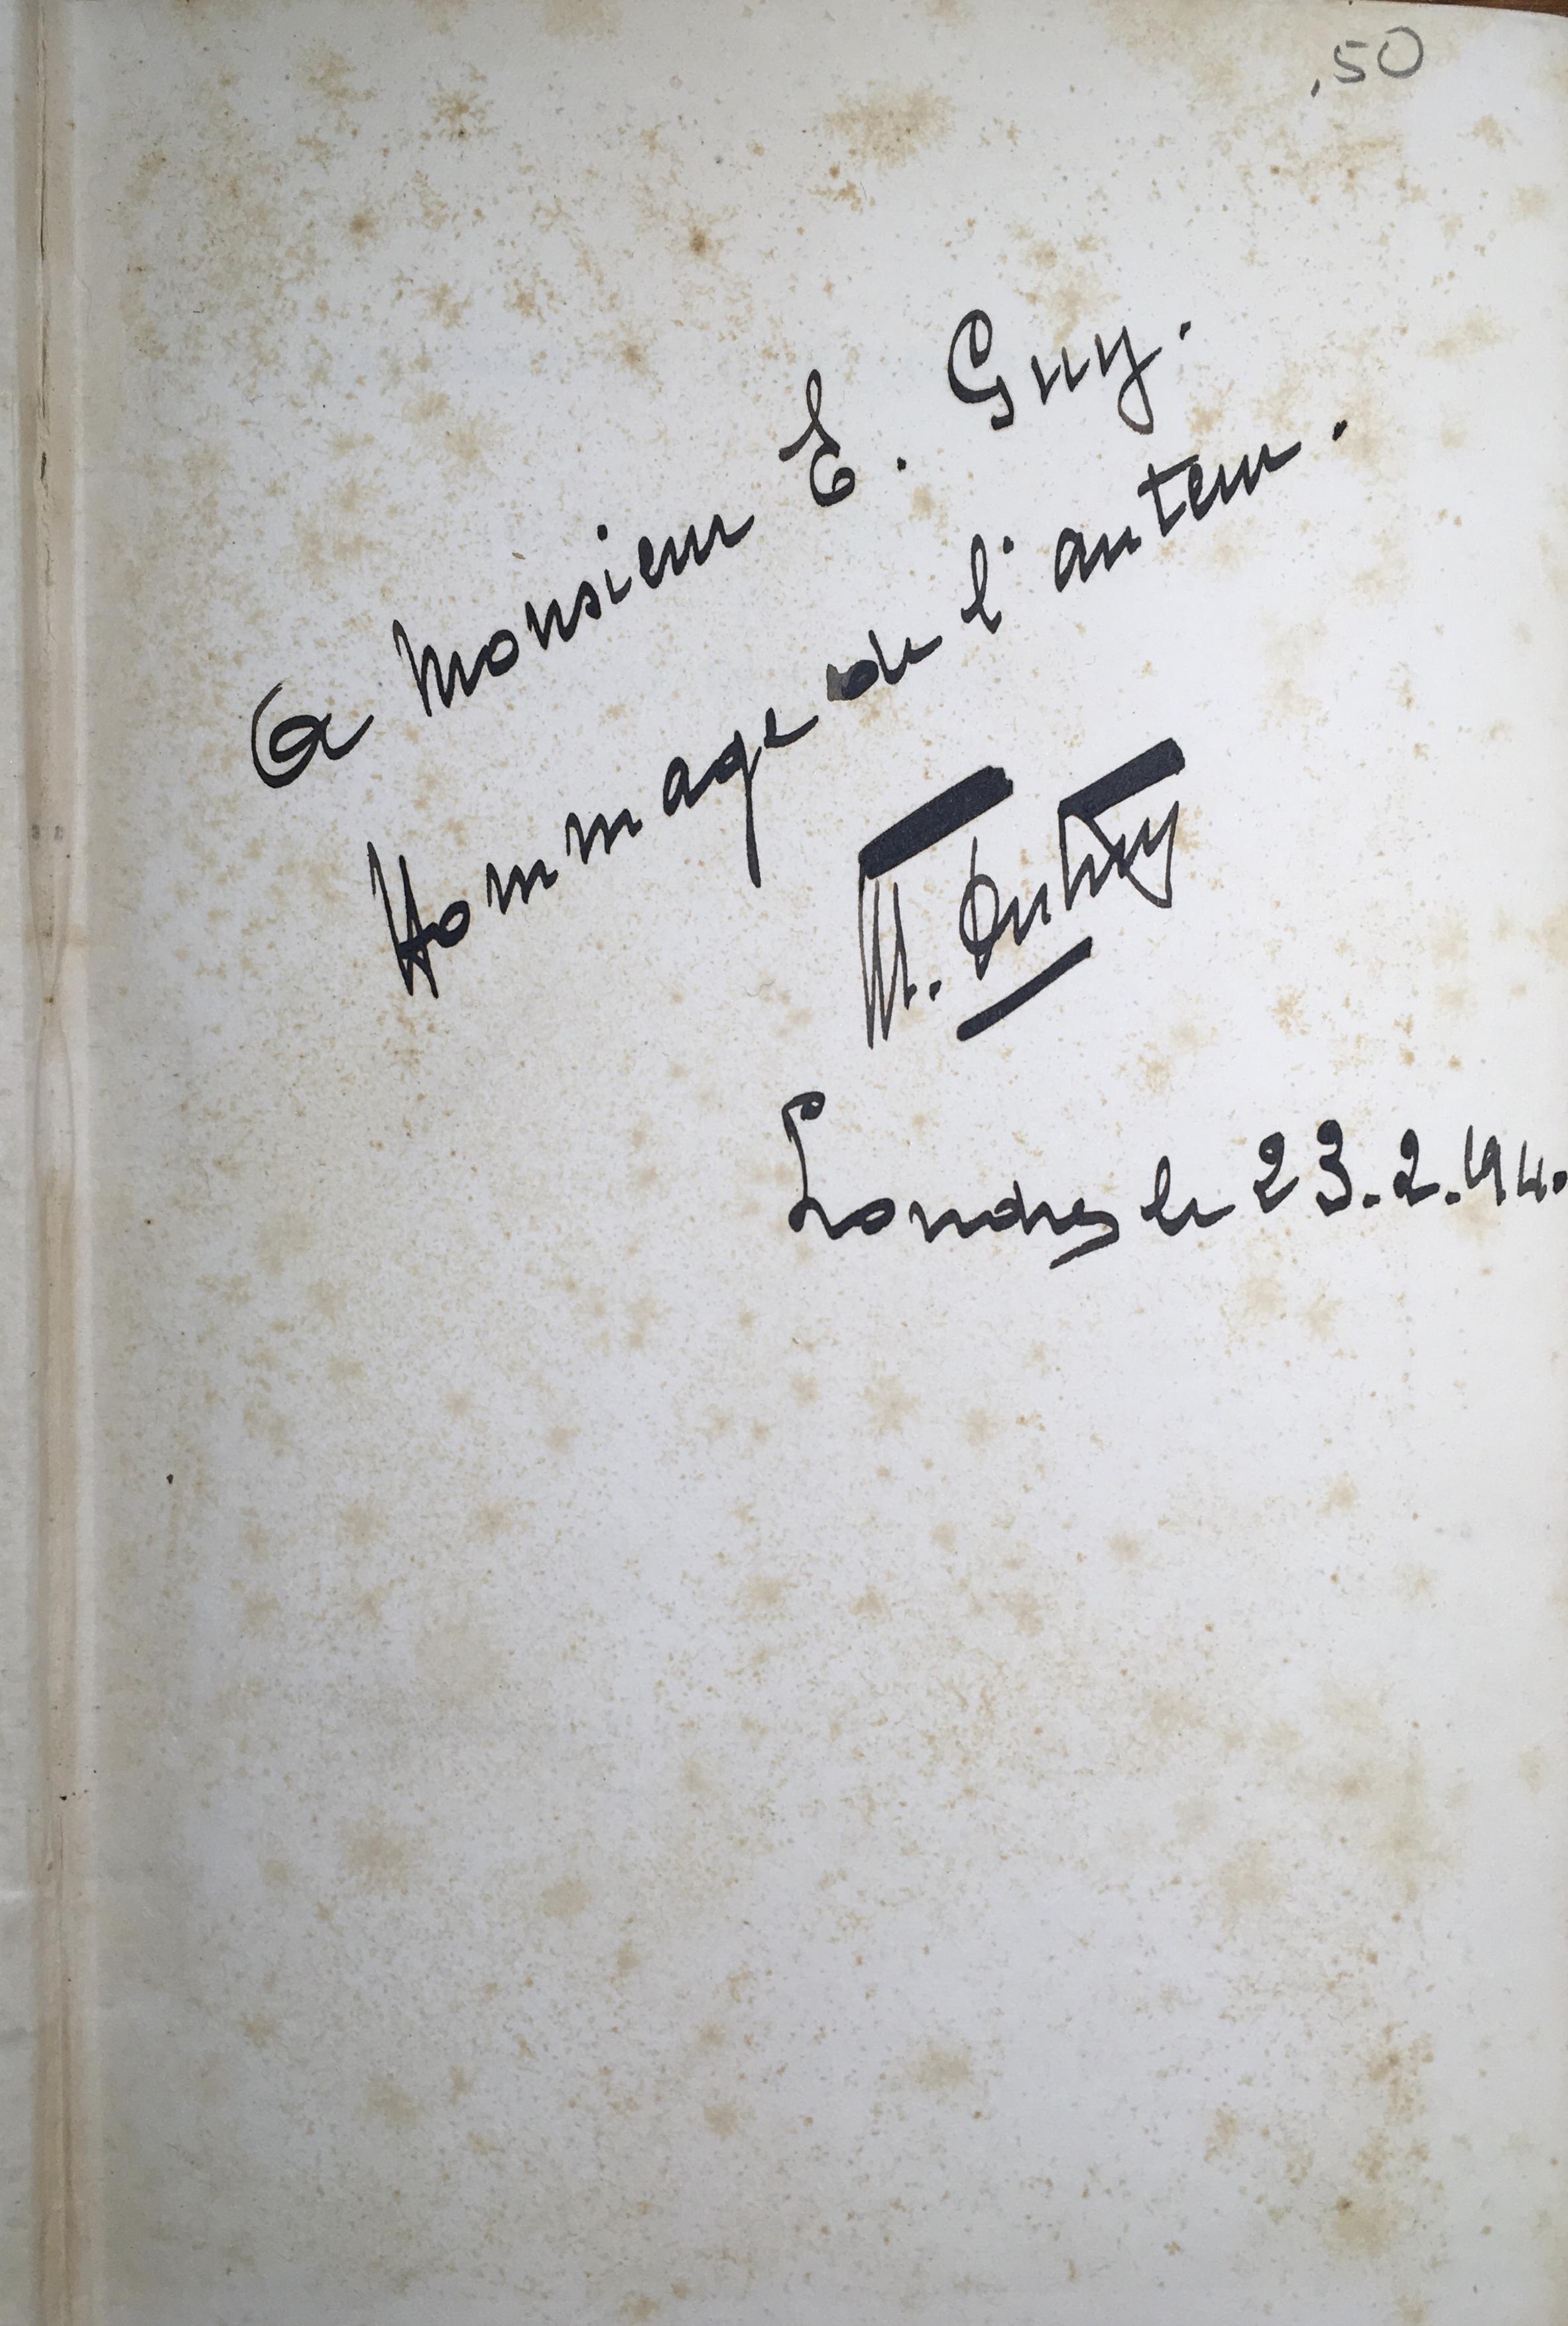 ,50
A Monsieur E. Guy.
Hommage de l'auteur.
M.
Londres le 23.2.194.